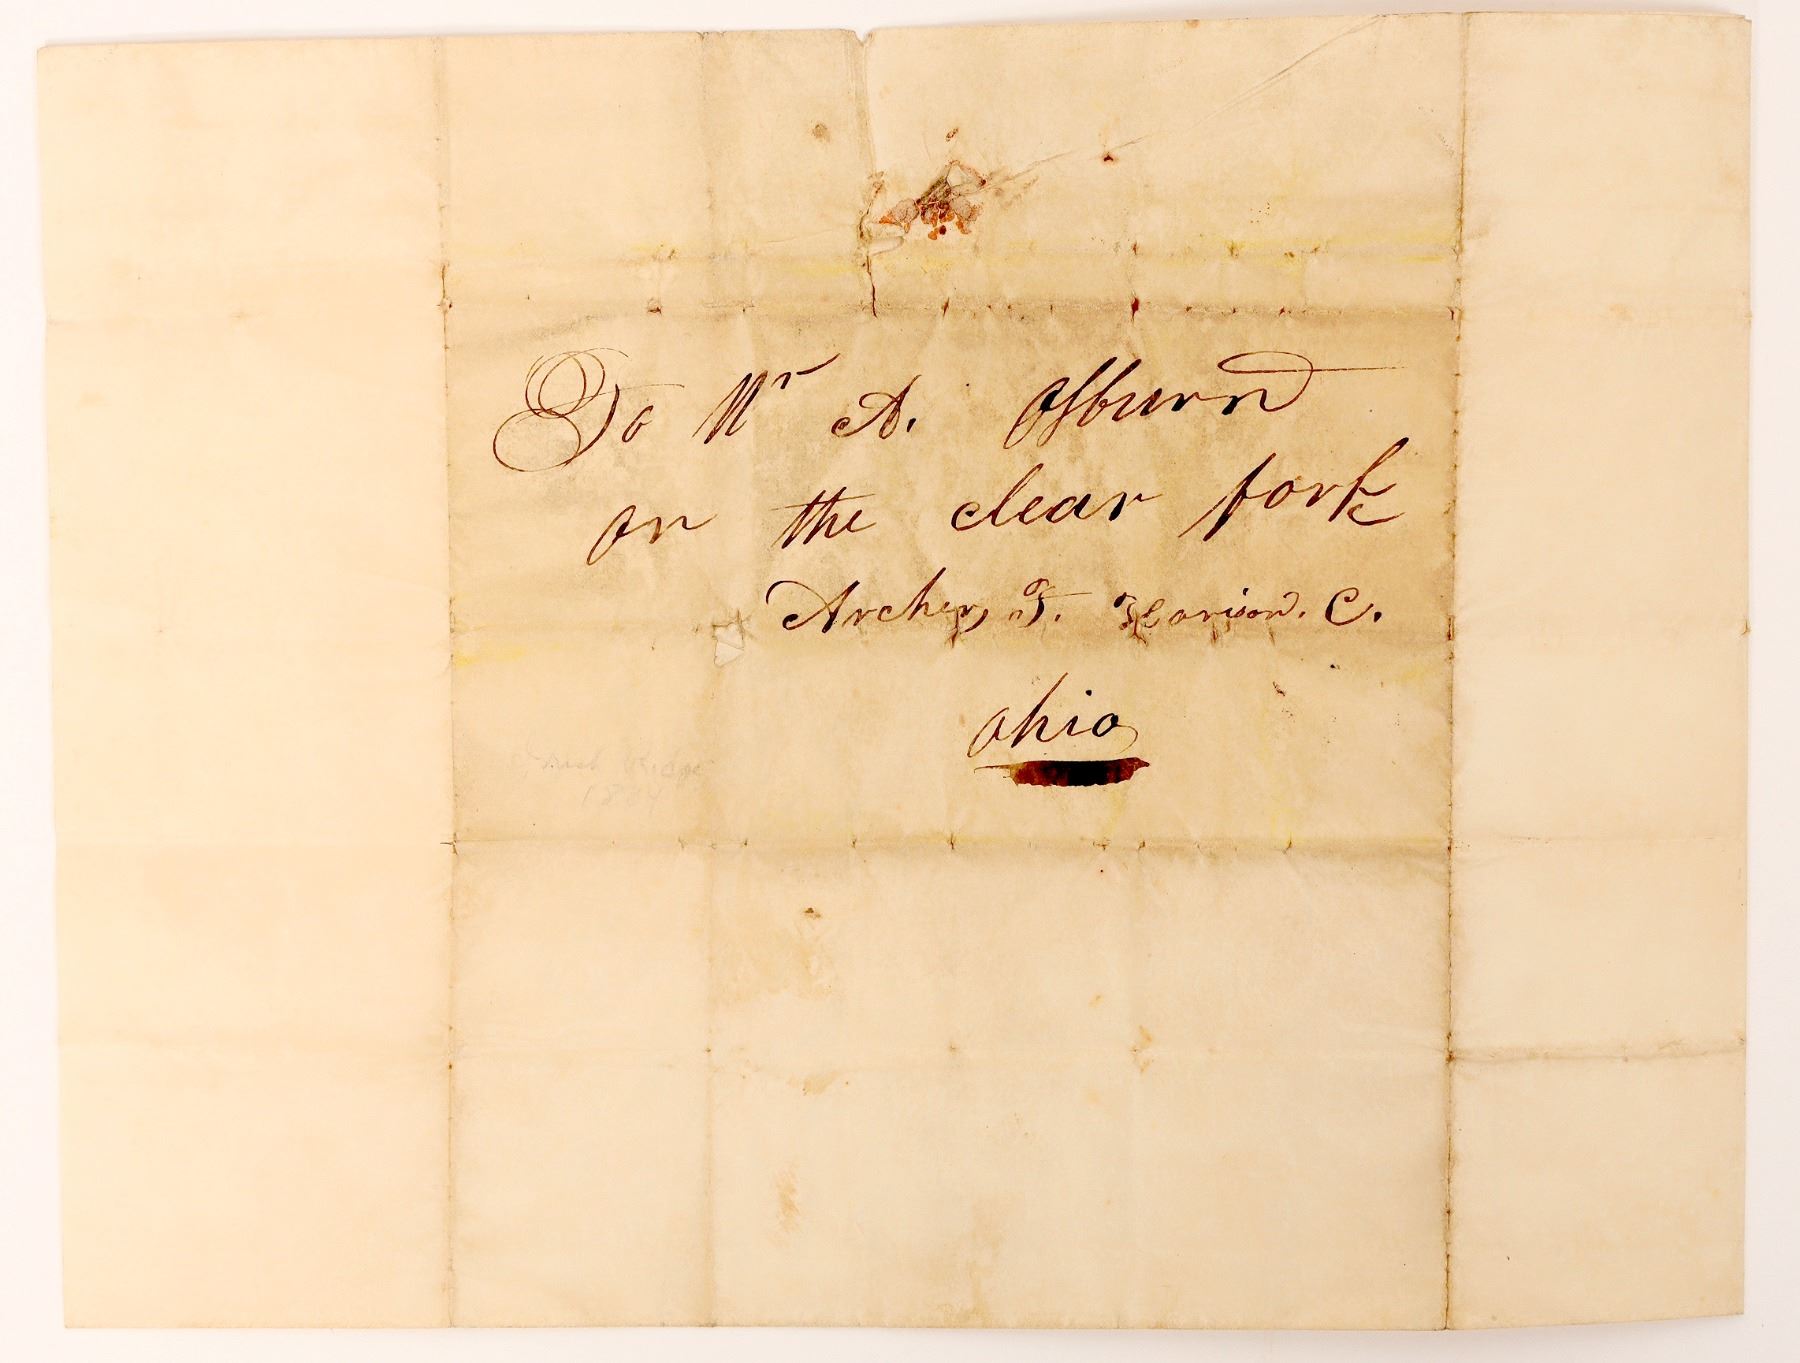 To Mr A. Osburn
on the clear fork
Archer, T. Harison. C.
Ohio